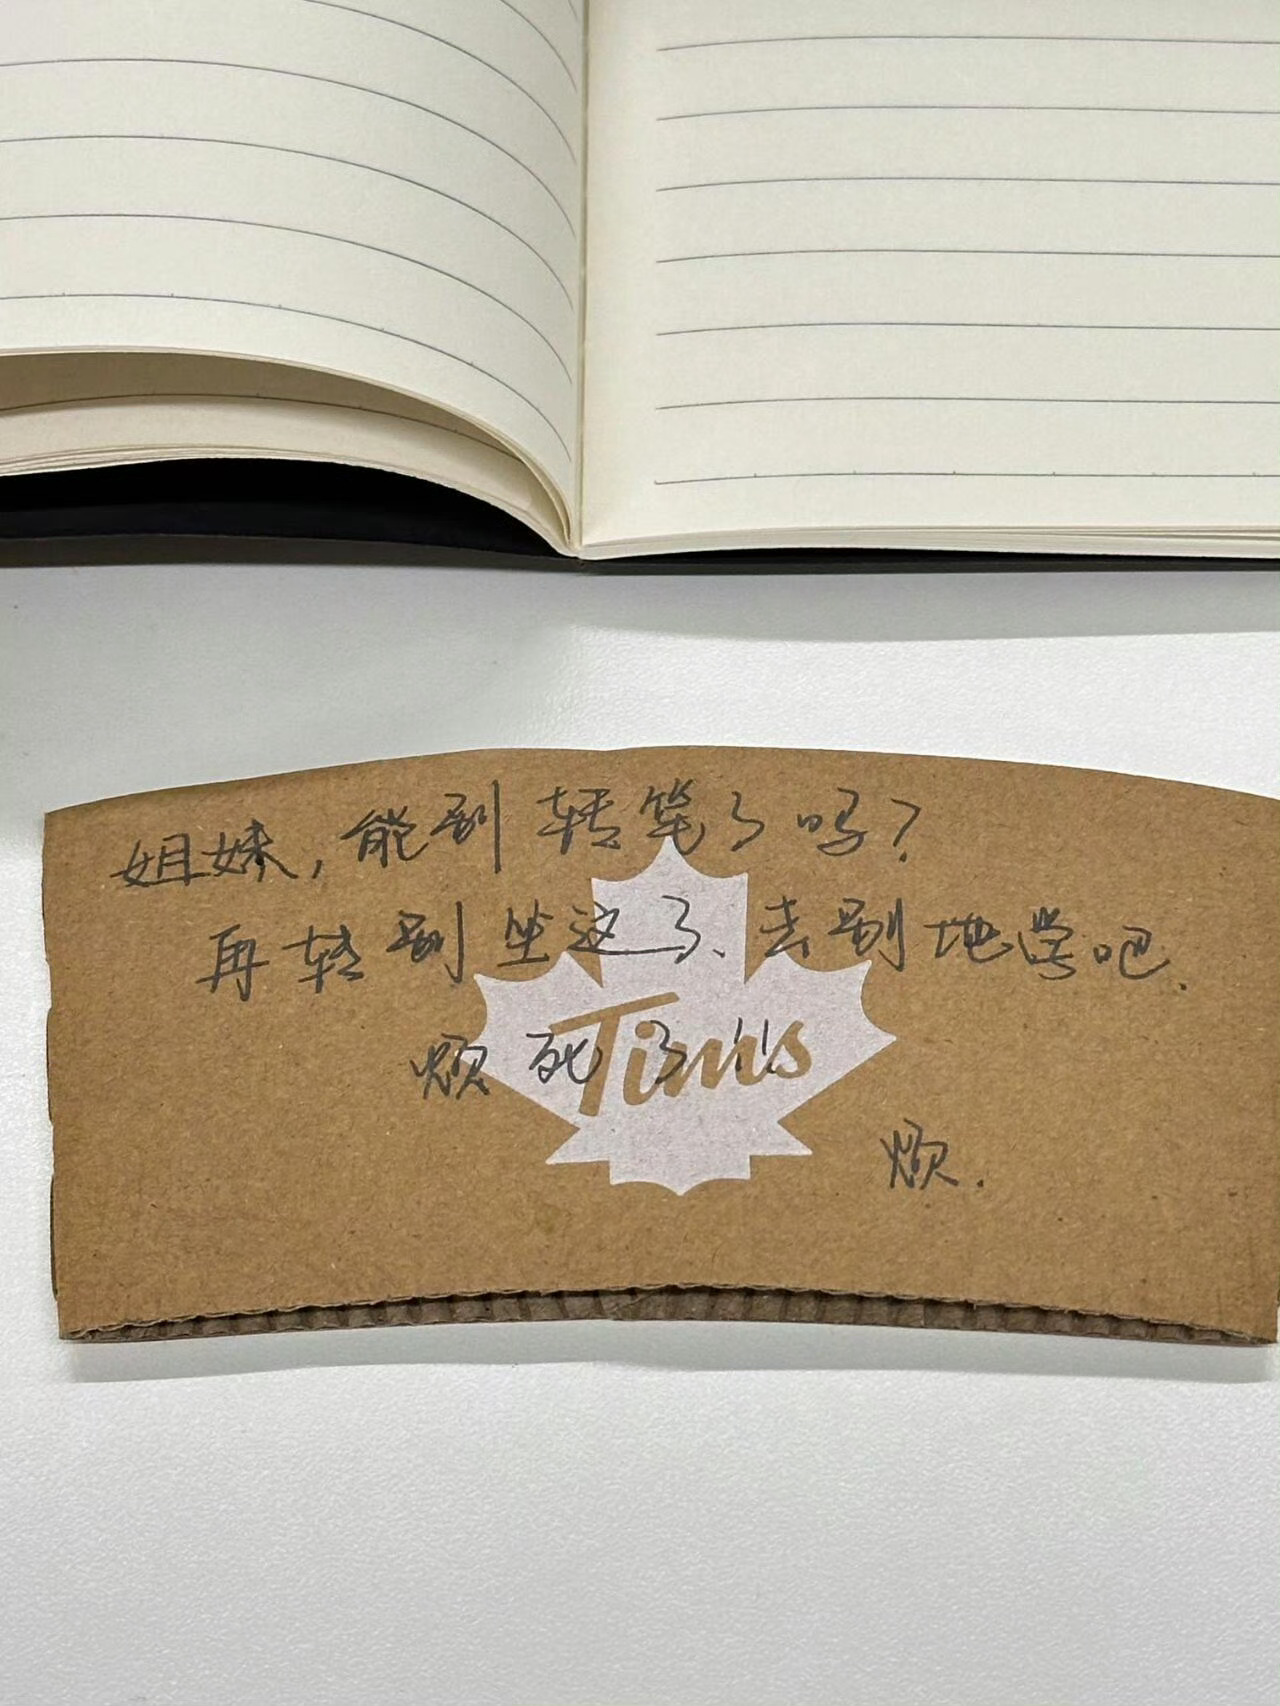 姐妹,能别转笔了吗?
再转别坐这了、去别地学吧.
烦死了!!
Tims
烦.